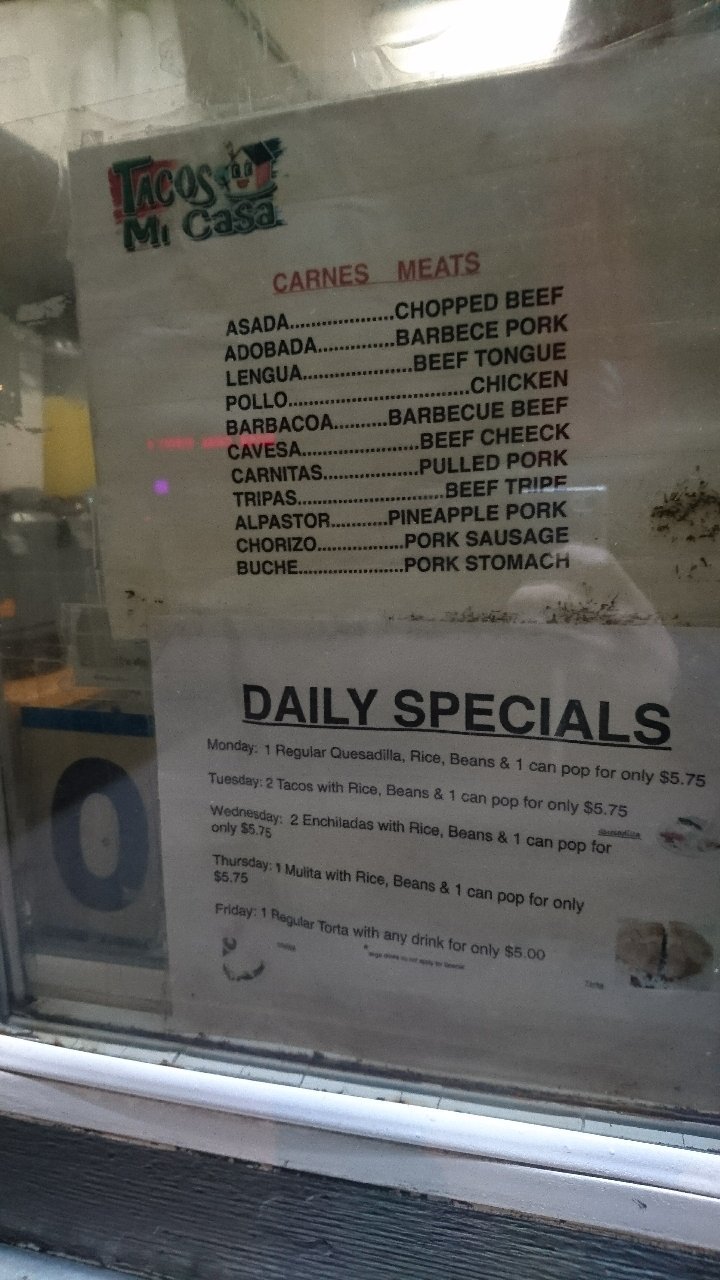 TACOS
Mi Casa
CARNES MEATS
ASADA....................CHOPPED BEEF
ADOBADA...............BARBECE PORK
LENGUA.....................BEEF TONGUE
POLLO...................................CHICKEN
BARBACOA..........BARBECUE BEEF
CAVESA......................BEEF CHEECK
CARNITAS..................PULLED PORK
TRIPAS............................BEEF TRIPE
ALPASTOR...........PINEAPPLE PORK
CHORIZO.................PORK SAUSAGE
BUCHE.....................PORK STOMACH
DAILY SPECIALS
Monday: 1 Regular Quesadilla, Rice, Beans & 1 can pop for only $5.75
Tuesday: 2 Tacos with Rice, Beans & 1 can pop for only $5.75
Wednesday: 2 Enchiladas with Rice, Beans & 1 can pop for
only $5.75
Thursday: 1 Mulita with Rice, Beans & 1 can pop for only
$5.75
Friday: 1 Regular Torta with any drink for only $5.00
Torta